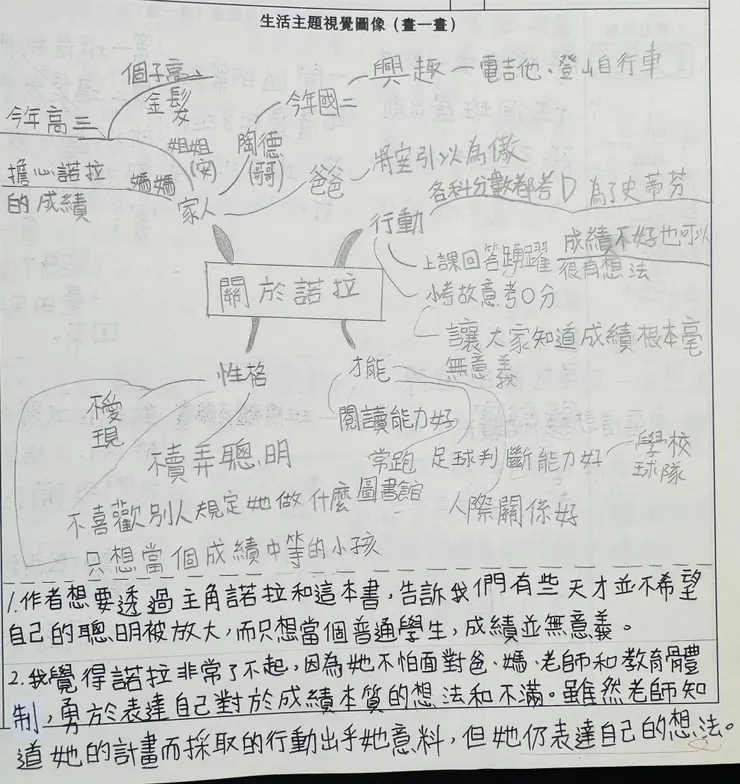 生活主題視覺圖像（畫一畫）
今年高三
個子高
金髮
姐姐
(安)
擔心諾拉
的成績
媽媽
家人
陶德
(哥)
今年國二
興趣 — 電吉他、登山自行車
爸爸
將室引以為傲
行動
各科分數都考D
為了史蒂芬
上課回答踴躍
成績不好也可以
很有想法
小考故意考0分
讓大家知道成績根本毫
無意義
關於諾拉
性格
不愛
現
櫝弄聰明
不喜歡別人規定她做什麼
只想當個成績中等的小孩
才能
閱讀能力好
常跑
圖書館
足球判斷能力好
學校
球隊
人際關係好
1.作者想要透過主角諾拉和這本書，告訴我們有些天才並不希望
自己的聰明被放大，而只想當個普通學生，成績並無意義。
2.我覺得諾拉非常了不起，因為她不怕面對爸、媽、老師和教育體
制，勇於表達自己對於成績本質的想法和不滿。雖然老師知
道她的計畫而採取的行動出乎她意料，但她仍表達自己的想法。